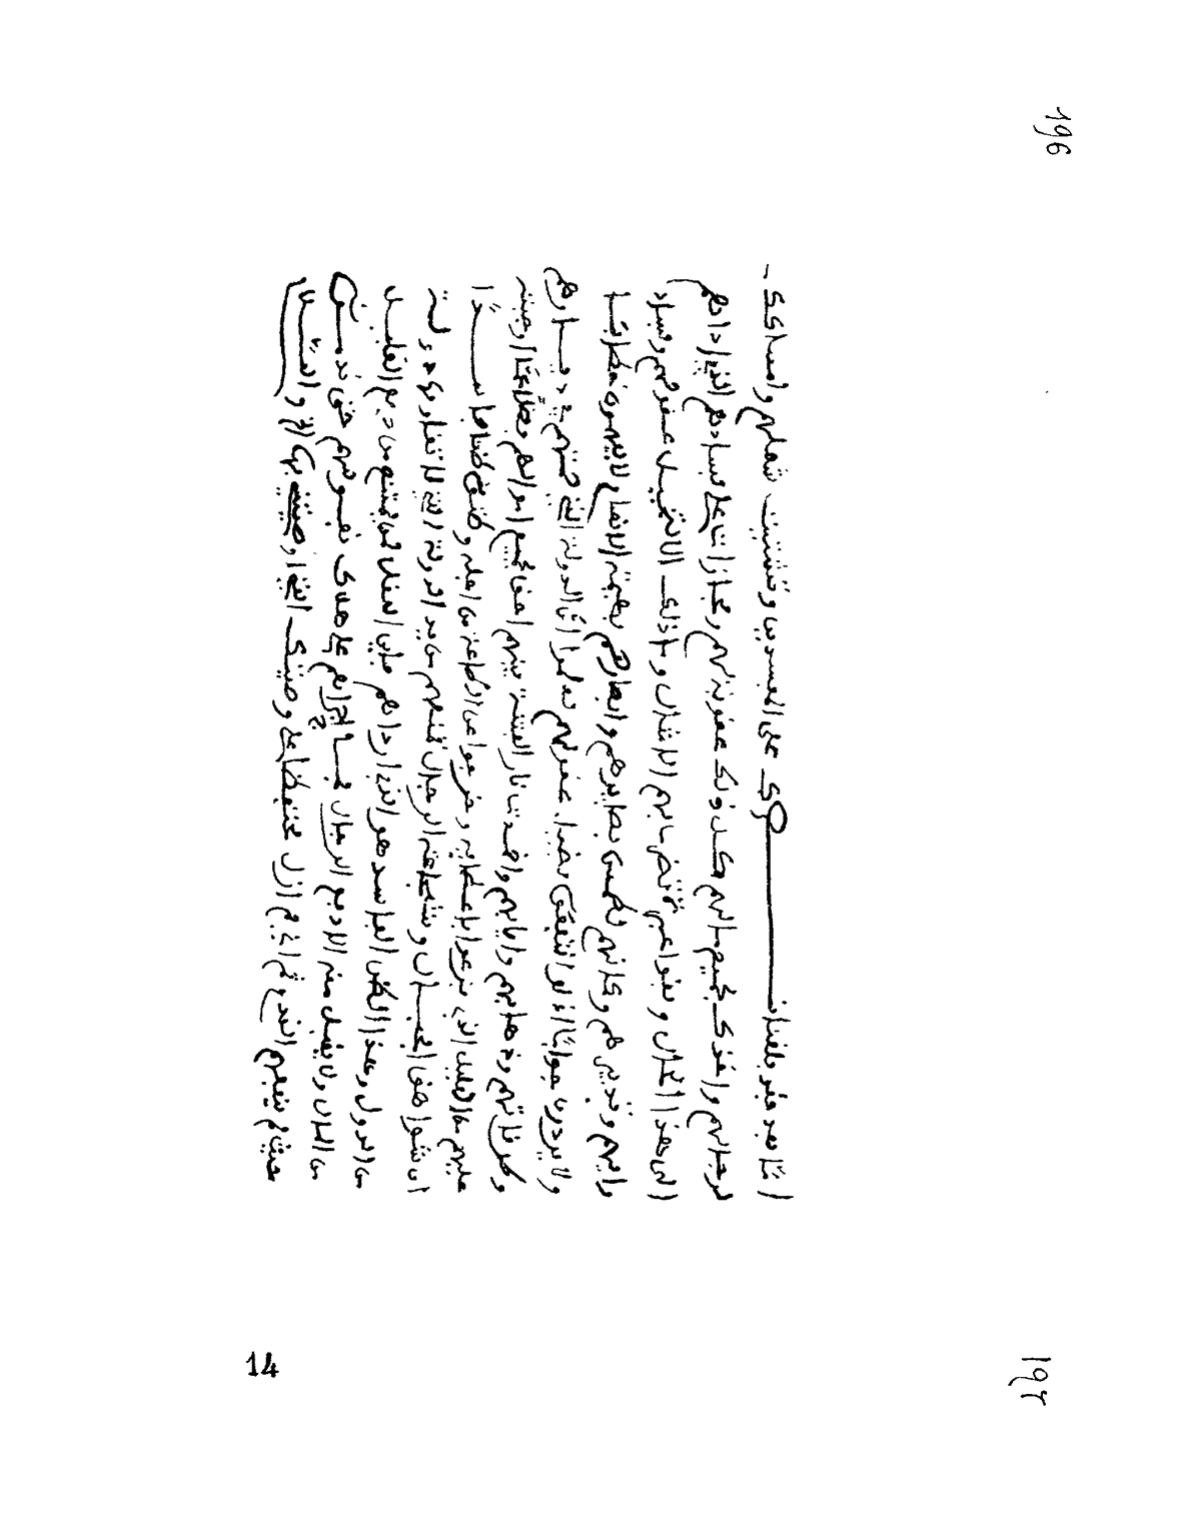 196
اما بعد فقد بلغنا على المفسدين وتشتيت شملهم وامساكك
لرجالهم واخذك لجميع مالهم وكل ذلك عقوبة لهم ومجازات على فسادهم الذي اداهم
الى هذا الحال وبقوا عبرة بهم الامثال وما ذلك الا عقولهم وفساد
رايهم وتدبيرهم وكانهم لطمس بصايرهم وابصارهم بهيمة الانعام لا يفهمون خطابا
ولا يردون جوابا اذ لو عقولهم لعلموا ان الدولة التي ديارهم
وطرقاتهم وذهابهم وايابهم واخمدت نار الفتنة بينهم احق بجميع اموالهم فضلا عما اوجبته
عليهم من القليل الذي وخرجوا عن الطاعة من اجله وظنوا ظنا فاسدا
ان شواهق الجبال وشجاعة الرجال تمنعهم من يد الدولة التي
من الدول وهذا الظن الفاسد هو الذي ارداهم فاين العقل لمن يمتنع من دفع القليل
من المال ولا يقبل منه الا دفع الرجال على هلاك نفوسهم حتى
حيث لم ينفعهم الندم ثم اني لم ازل محتفظا على وصيتك التي اوصيتني بها والسلام
14